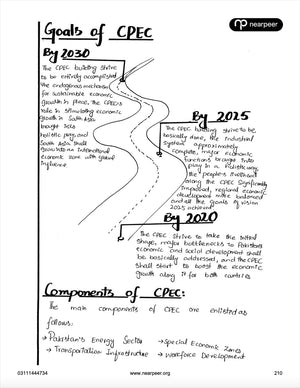 nearpeer
Goals of CPEC
By 2030
The CPEC building strive
to be entirely accomplished
the endogenous mechanism
for sustainable economic
growth in place, the CPEC's
role in stimulating economic
growth in South Asia
brought into
holistic play, and
South Asia shall
grow into an international
economic zone with global
influence.
By 2025
The CPEC building strive to be
basically done, the industrial
system approximately
complete, major economic
functions brought into
play in a holistic way,
the people's livelihood
along the CPEC significantly
improved, regional economic
development more balanced
and all the goals of vision
2025 achieved.
By 2020
The CPEC strive to take the initial
shape, major bottlenecks to Pakistan's
economic and social development shall
be basically addressed, and the CPEC
shall start to boost the economic
growth along it for both countries
Components of CPEC:
The main components of CPEC are enlisted as
follows:
→ Pakistan's Energy Sector → Special Economic Zones
→ Transportation Infrastructure → Workforce Development
03111444734 www.nearpeer.org 210